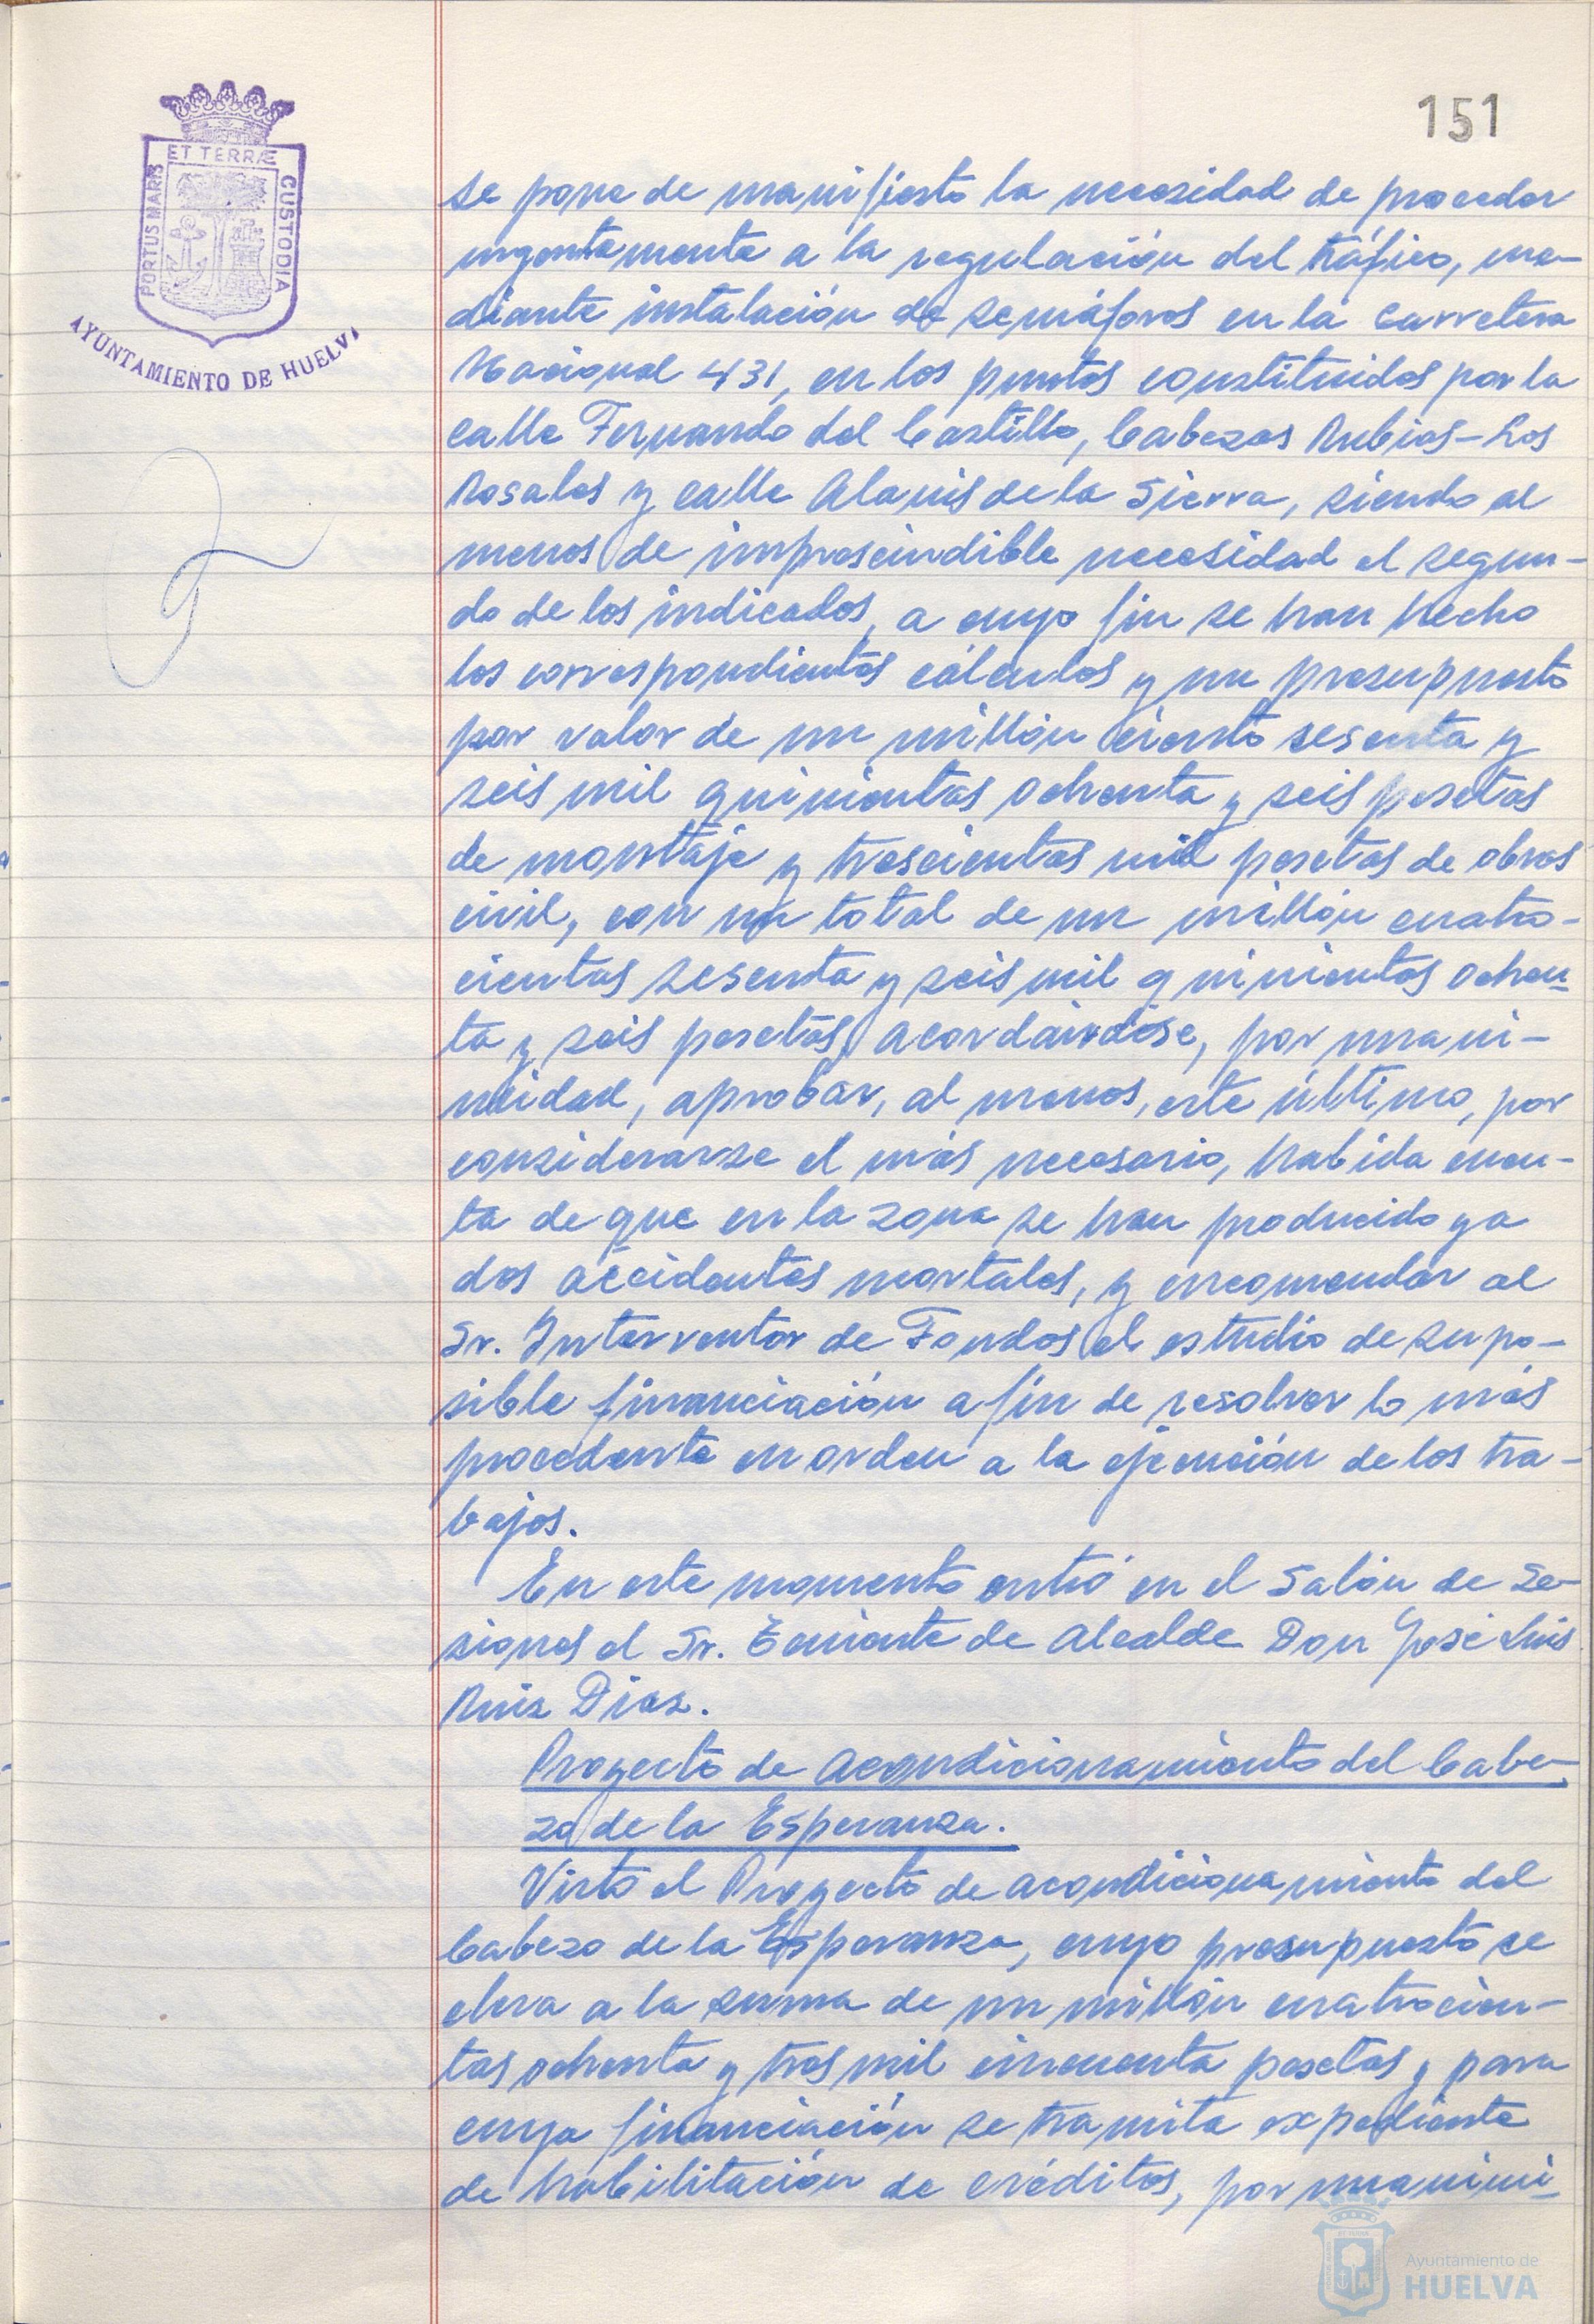 151
ET TERRÆ
PORTUS MARIS
CUSTODIA
AYUNTAMIENTO DE HUELVA
se pone de manifiesto la necesidad de proceder
urgentemente a la regulación del tráfico, me-
diante instalación de semáforos en la carretera
Nacional 431, en los puntos constituidos por la
calle Fernando del Castillo, Cabezas Rubias-Los
Rosales y calle Alanis de la Sierra, siendo al
menos de imprescindible necesidad el segun-
do de los indicados, a cuyo fin se han hecho
los correspondientes cálculos y un presupuesto
por valor de un millón ciento sesenta y
seis mil quinientas ochenta y seis pesetas
de montaje y trescientas mil pesetas de obras
civil, con un total de un millón cuatro-
cientas sesenta y seis mil quinientas ochen-
ta y seis pesetas, acordándose, por unani-
midad, aprobar, al menos, este último, por
considerarse el más necesario, habida cuen-
ta de que en la zona se han producido ya
dos accidentes mortales, y encomendar al
Sr. Interventor de Fondos el estudio de su po-
sible financiación a fin de resolver lo más
procedente en orden a la ejecución de los tra-
bajos.
En este momento entró en el Salón de Se-
siones el Sr. Teniente de Alcalde Don José Luis
Ruiz Díaz.
Proyecto de acondicionamiento del Cabe-
zo de la Esperanza.
Visto el Proyecto de acondicionamiento del
Cabezo de la Esperanza, cuyo presupuesto se
eleva a la suma de un millón cuatrocien-
tas ochenta y tres mil cincuenta pesetas y para
cuya financiación se tramita expediente
de habilitación de créditos, por unanimi-
Ayuntamiento de
HUELVA